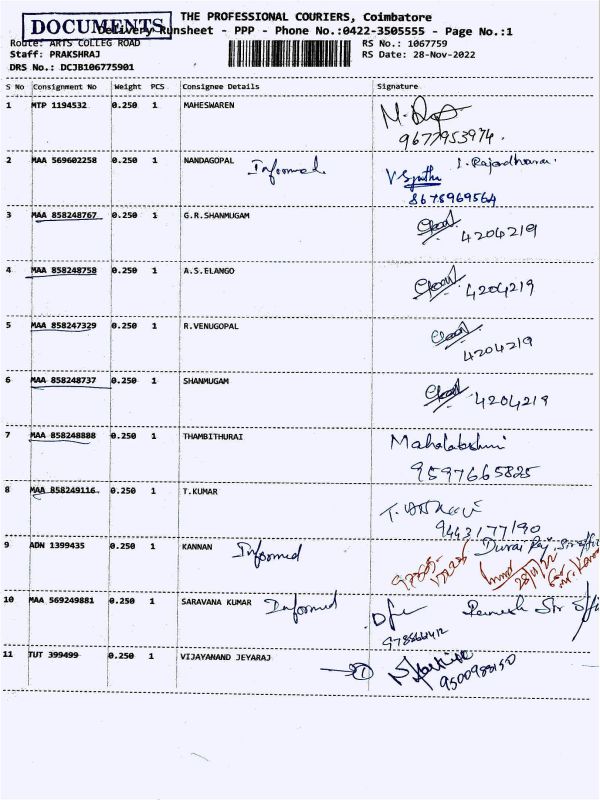 THE PROFESSIONAL COURIERS, Coimbatore
DOCUMENTS
Delivery Runsheet - PPP - Phone No.:0422-3505555 - Page No.:1
Route: ARTS COLLEG ROAD RS No.: 1067759
Staff: PRAKSHRAJ RS Date: 28-Nov-2022
DRS No.: DCJB106775901
S No Consignment No Weight PCS Consignee Details Signature
1 MTP 1194532 0.250 1 MAHESWAREN
9677953974.
2 MAA 569602258 0.250 1 NANDAGOPAL Informed
8678969564
3 MAA 858248767 0.250 1 G.R.SHANMUGAM
4204219
4 MAA 858248758 0.250 1 A.S.ELANGO
4204219
5 MAA 858247329 0.250 1 R.VENUGOPAL
4204219
6 MAA 858248737 0.250 1 SHANMUGAM
4204219
7 MAA 858248888 0.250 1 THAMBITHURAI Mahalakshmi
9597665825
8 MAA 858249116 0.250 1 T.KUMAR
9443177190
9 ADN 1399435 0.250 1 KANNAN Informed
28/11/22
10 MAA 569249881 0.250 1 SARAVANA KUMAR Informed Ramesh
11 TUT 399499 0.250 1 VIJAYANAND JEYARAJ 1
9500988150